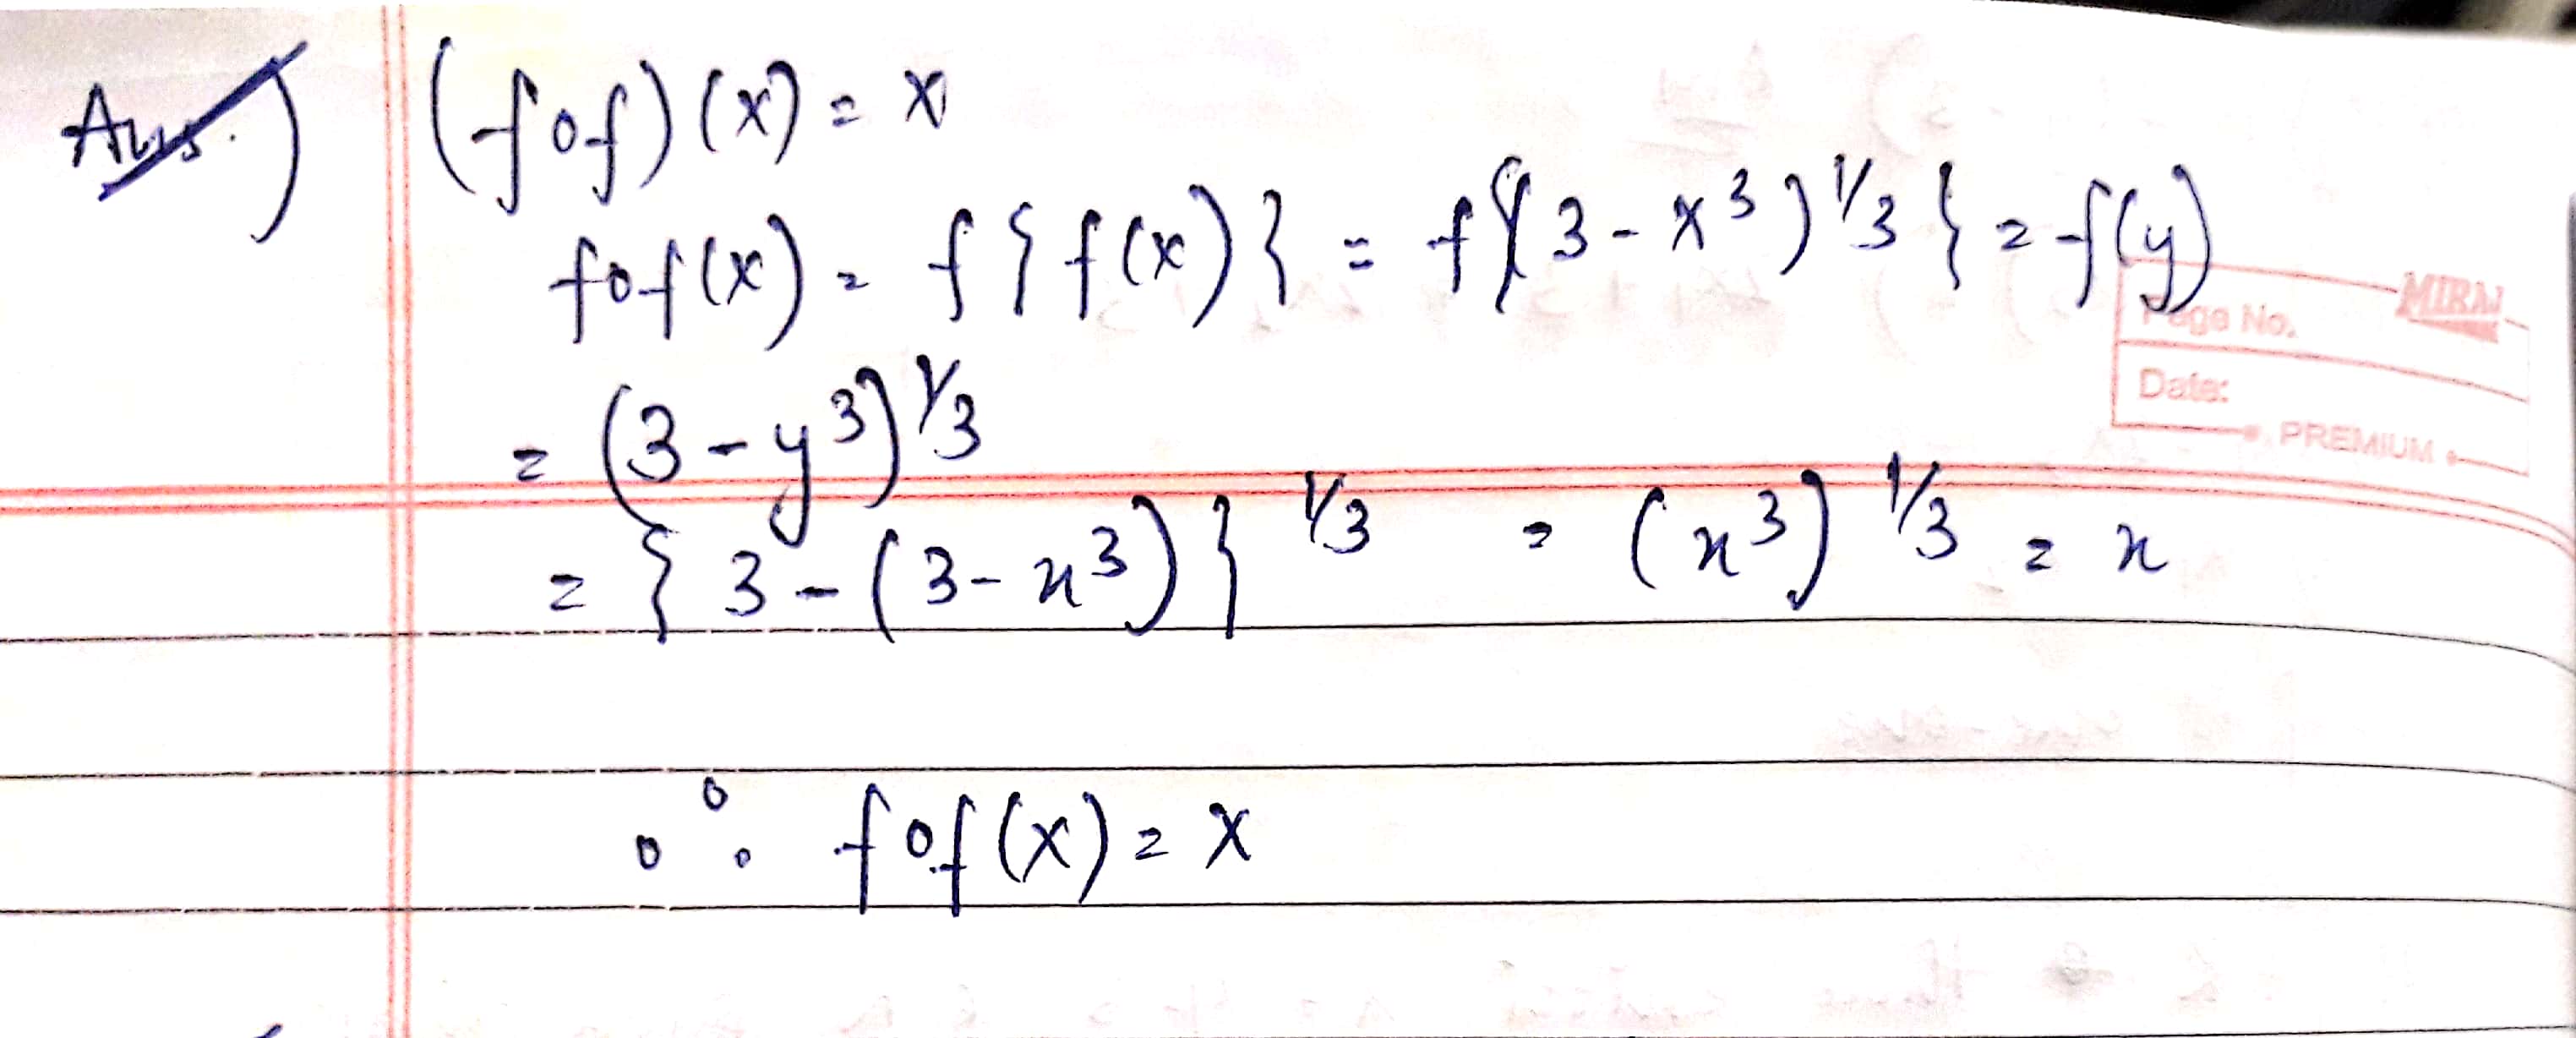 Ans.) (fof)(x) = x
fof(x) = f{f(x)} = f{(3-x³)^1/3} = f(y)
= (3-y³)^1/3
= {3-(3-x³)}^1/3 = (x³)^1/3 = x
∴ fof(x) = x
MIRAJ
Page No.
Date:
PREMIUM